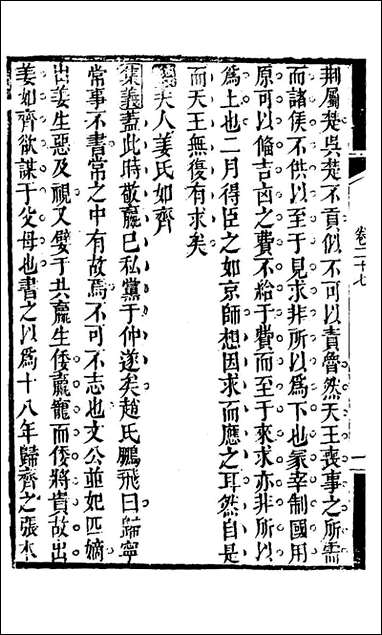 荆屬楚吳楚不貢似不可以責魯然天王喪事之所需
而諸侯不供以至于見求非所以為下也冢宰制國用
原可以備吉凶之費不給于費而至于來求亦非所以
為上也二月得臣之如京師想因求而應之耳然自是
而天王無復有求矣
夫人姜氏如齊
集義蓋此時敬嬴已私黨于仲遂矣趙氏鵬飛曰歸寧
常事不書常之中有故焉不可不志也文公並妃匹嫡
出姜生惡及視又嬖于共嬴生倭嬴寵而倭將貴故出
姜如齊欲謀于父母也書之以為十八年歸齊之張本
卷二十七
一